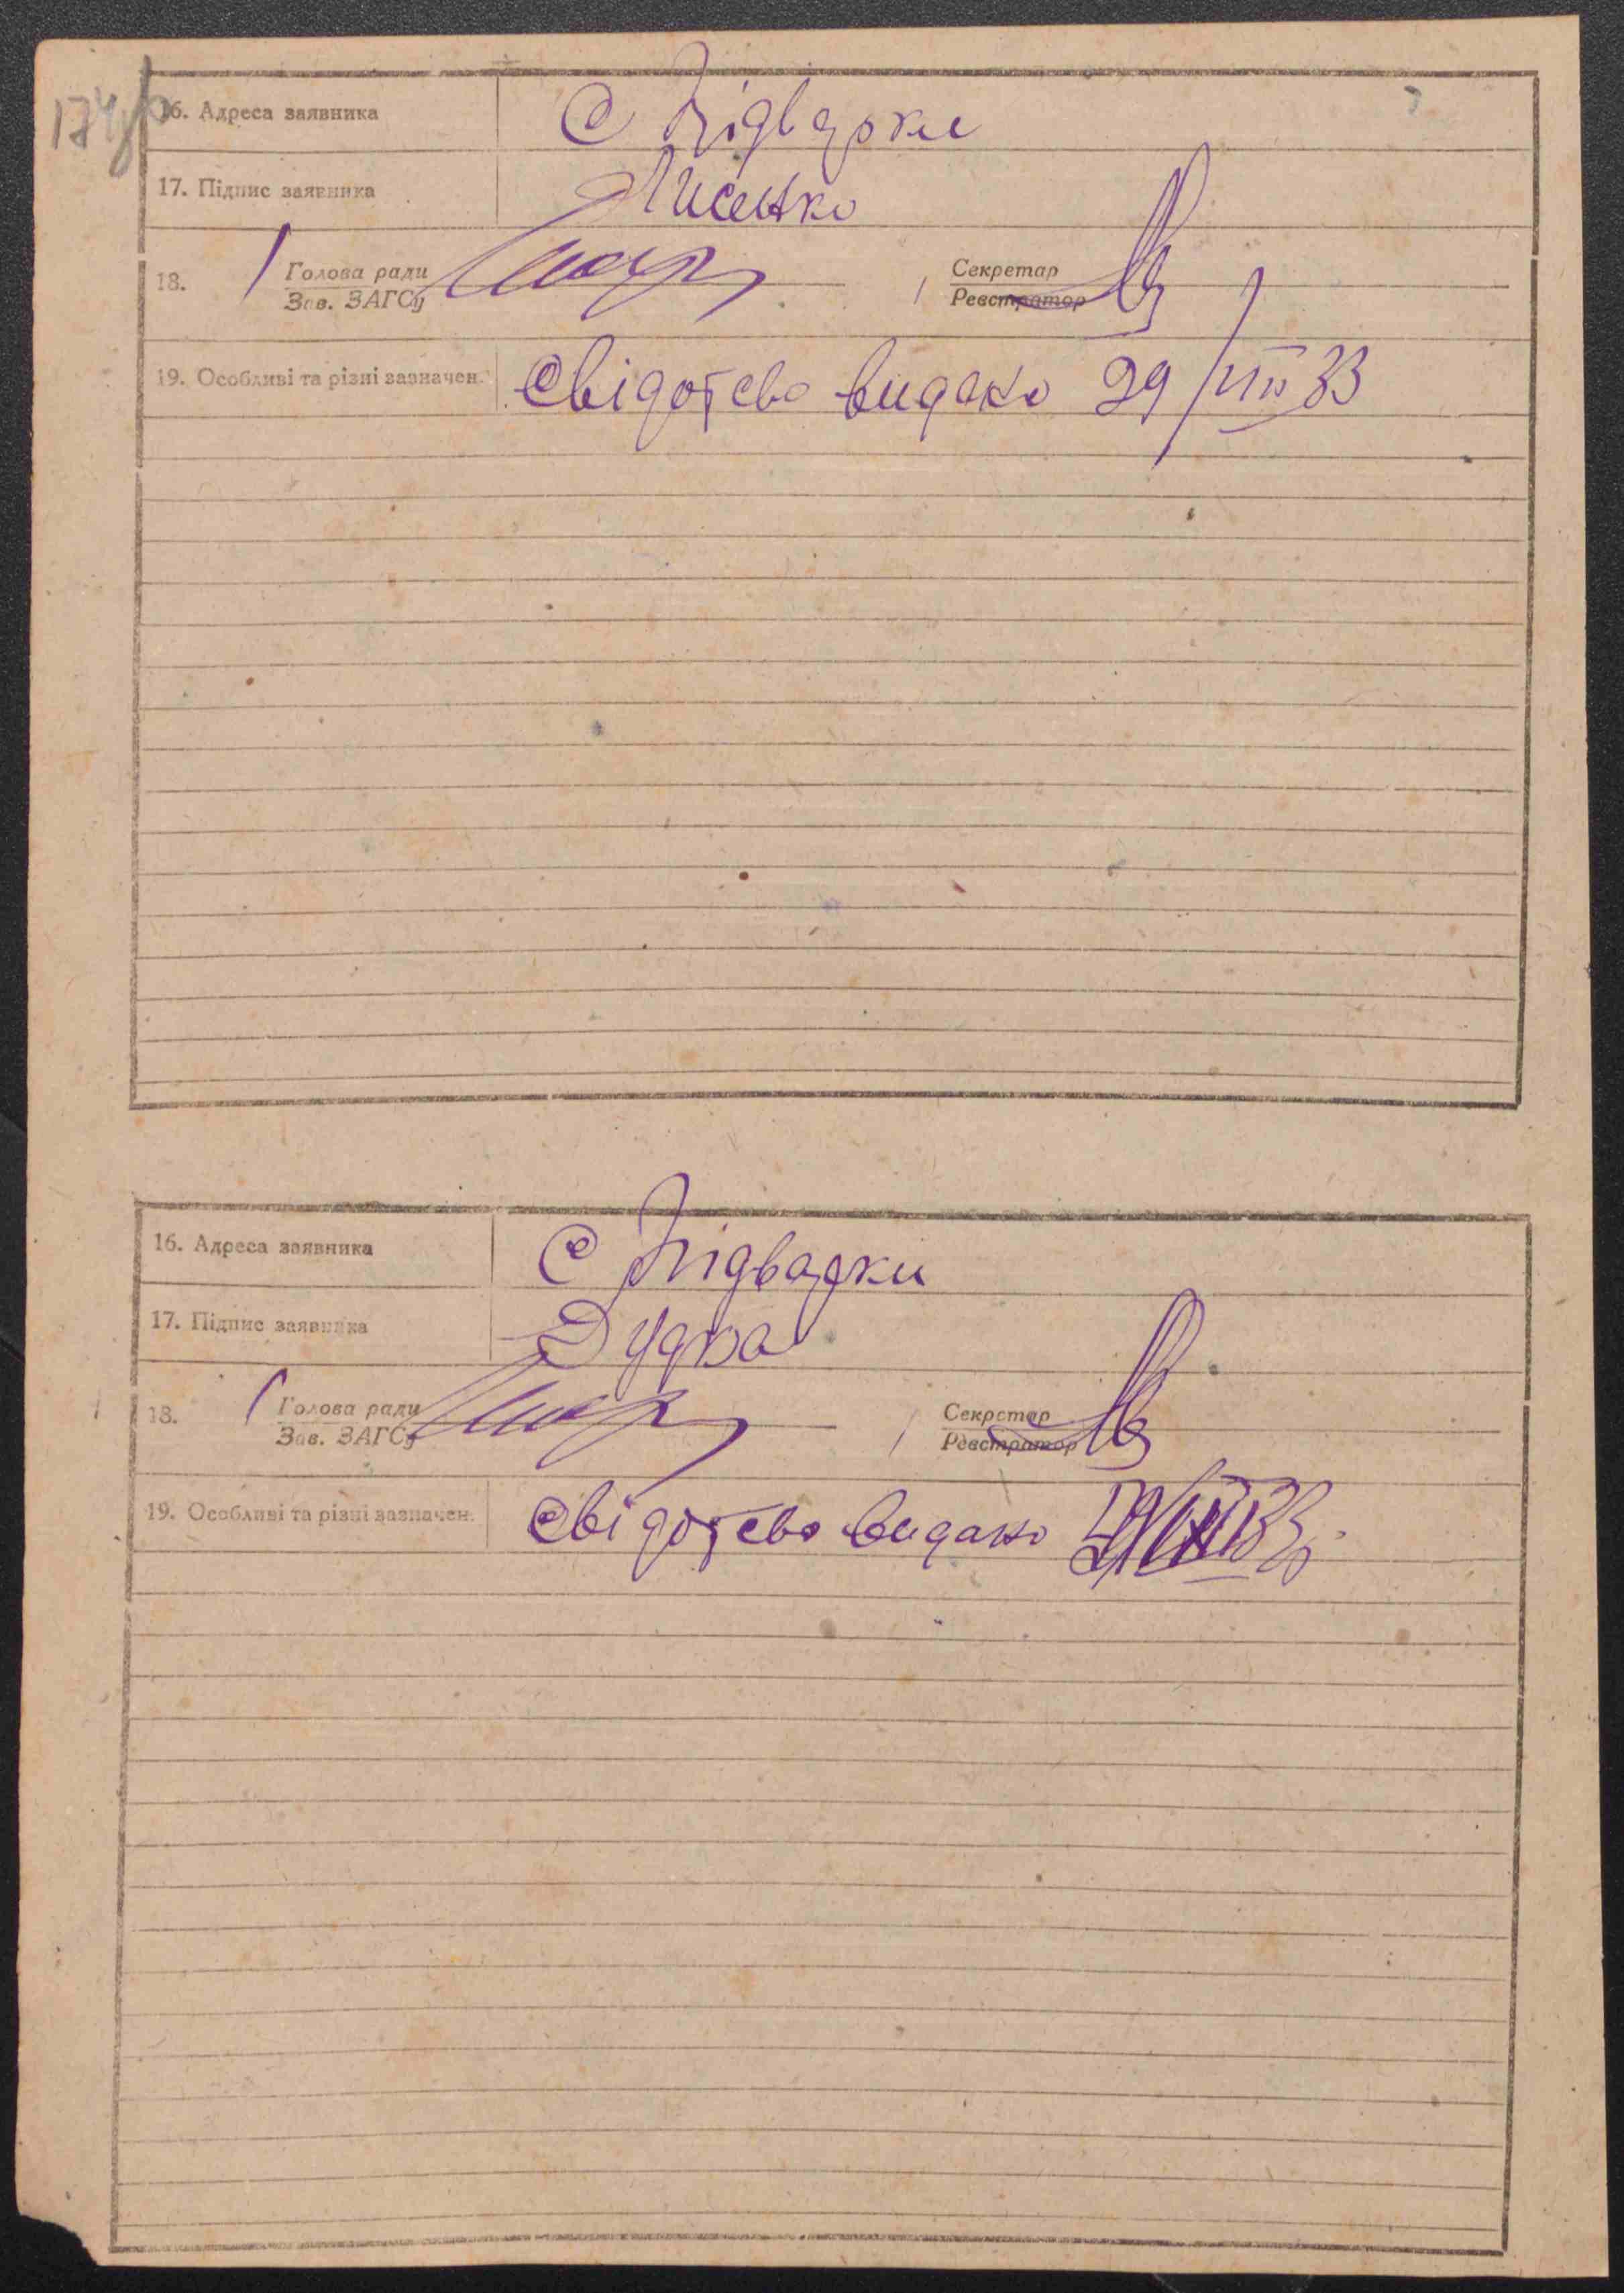 16. Адреса заявника С Підварки
17. Підпис заявника Лисенко
18. Голова ради Секретар
Зав. ЗАГСу Реєстратор
19. Особливі та різні зазначен. Свідотсво видано 29/VIII 33
16. Адреса заявника С Підварки
17. Підпис заявника Дудка
18. Голова ради Секретар
Зав. ЗАГСу Реєстратор
19. Особливі та різні зазначен. Свідотсво видано